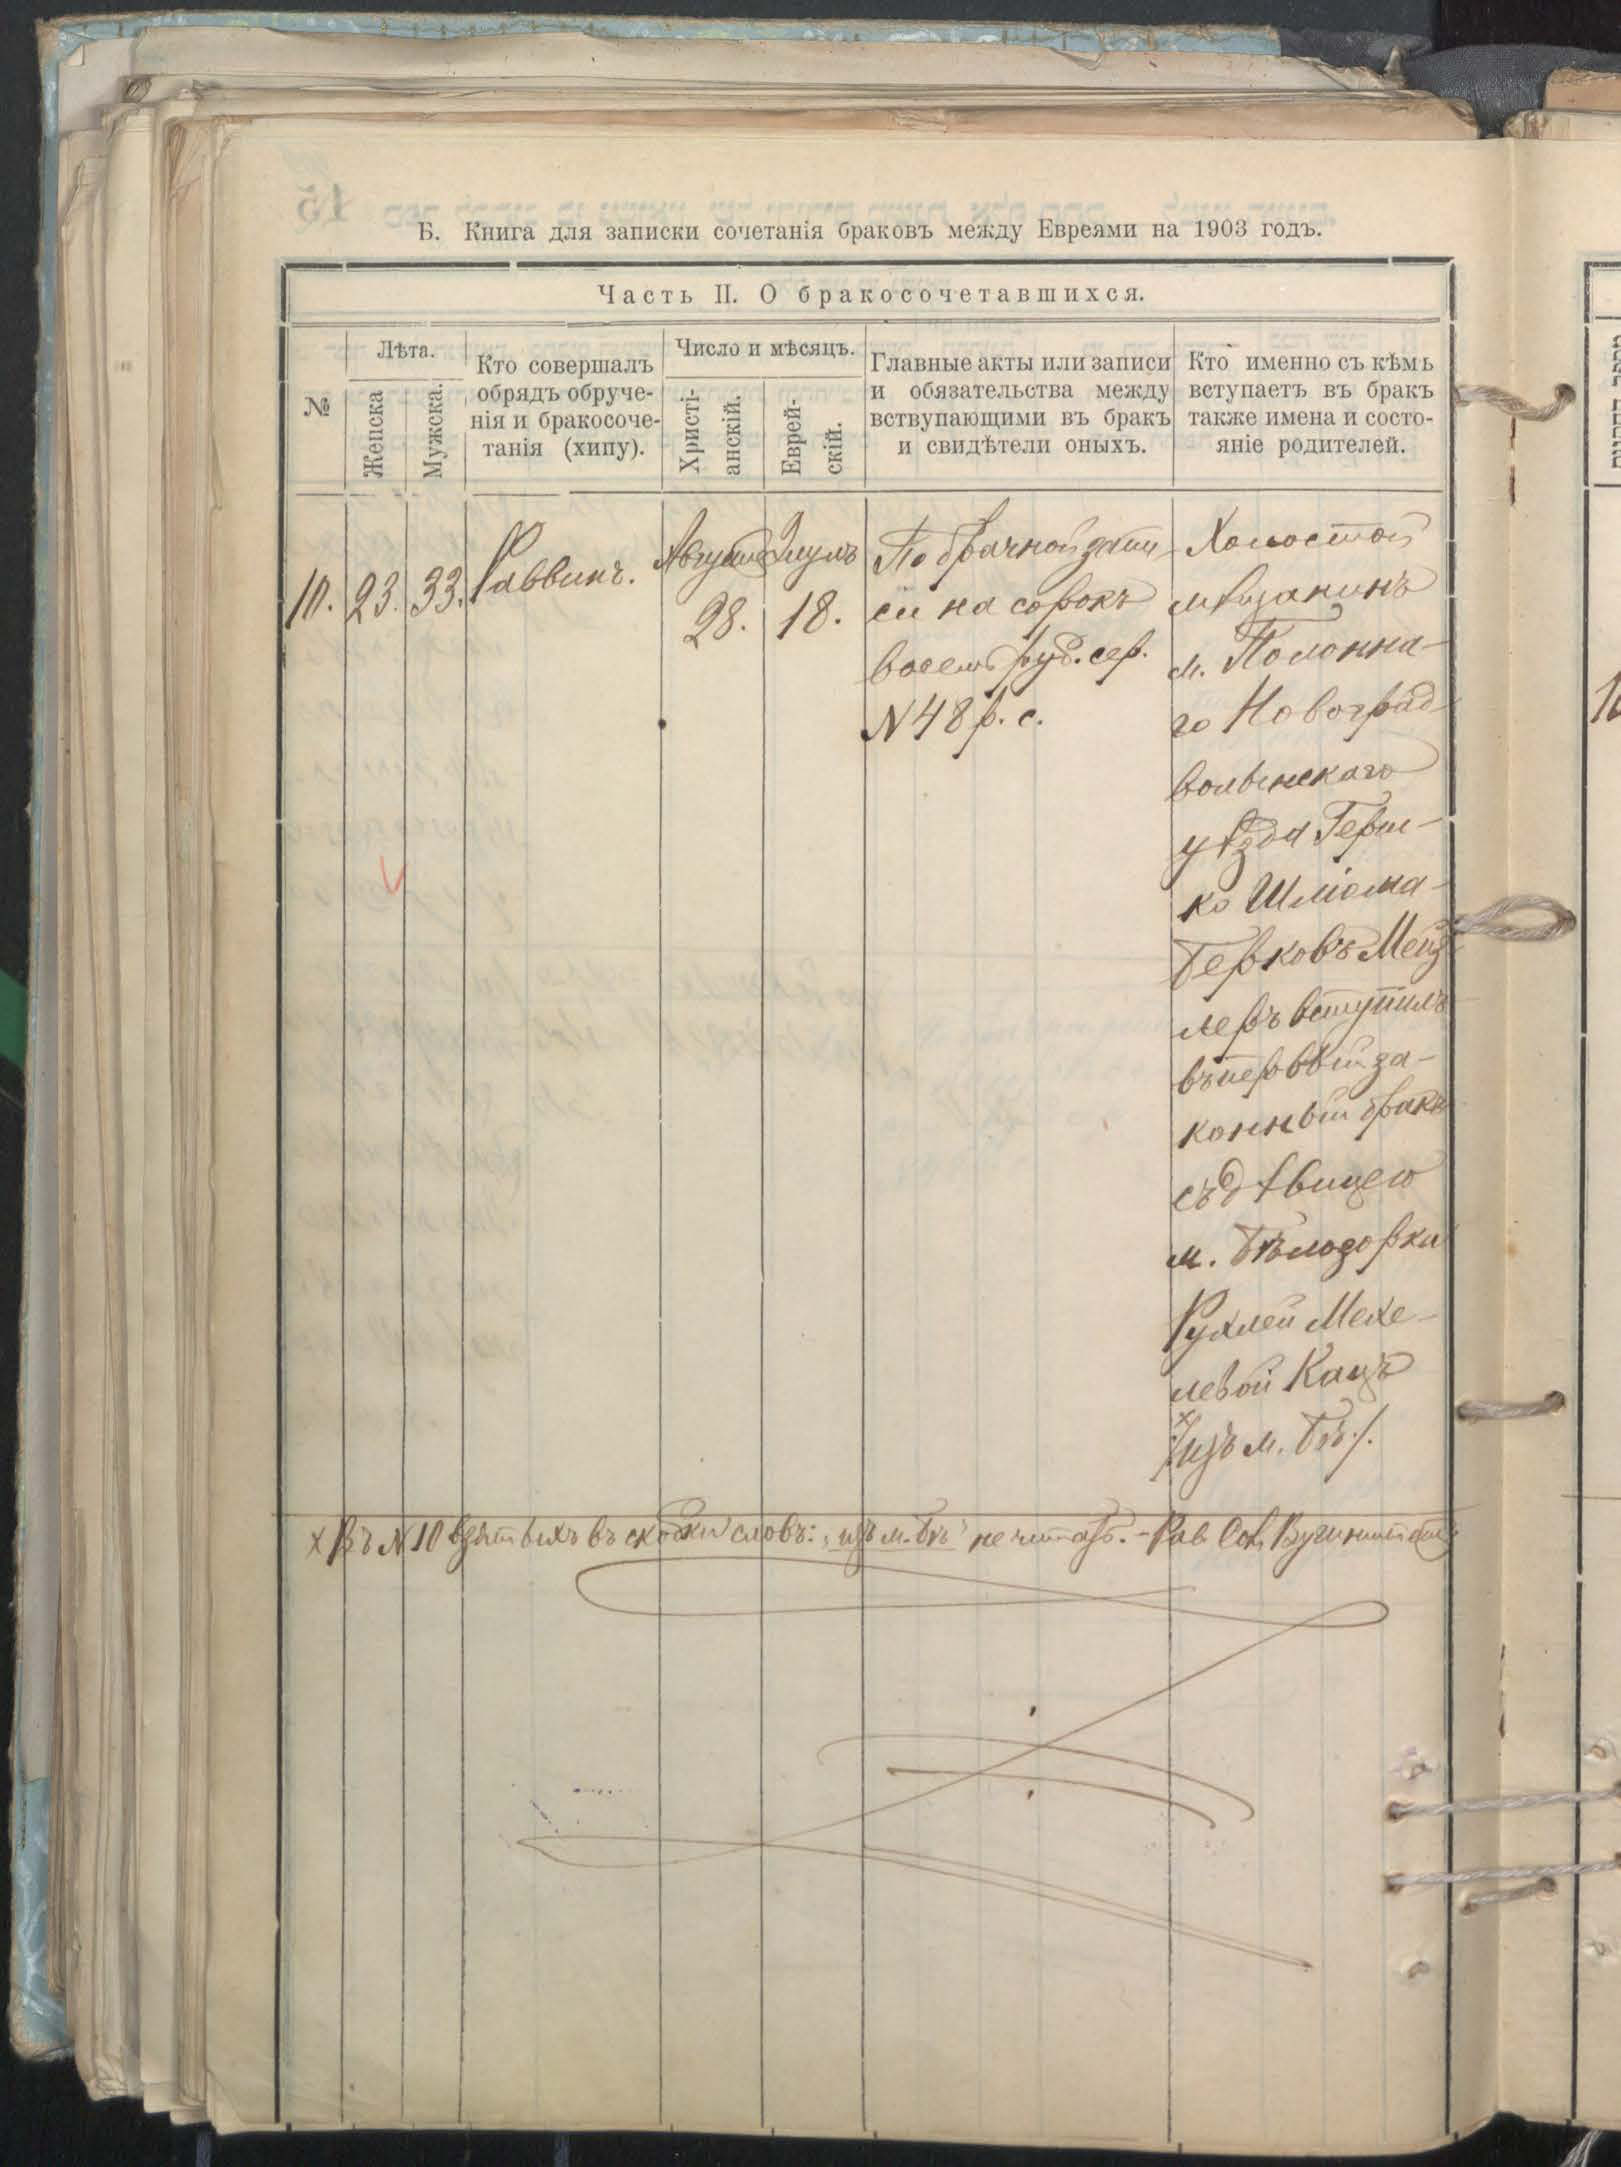 Б. Книга для записки сочетанія браковъ между Евреями на 1903 годъ.
Часть II. О бракосочетавшихся.
№
Лѣта.
Женска
Мужска.
Кто совершалъ
обрядъ обруче-
нія и бракосоче-
танія (хипу).
Число и мѣсяцъ.
Христі-
анскій.
Еврей-
скій.
Главные акты или записи
и обязательства между
вствупающими въ бракъ
и свидѣтели оныхъ.
Кто именно съ кѣмъ
вступаетъ въ бракъ
также имена и состо-
яніе родителей.
10.
23.
33.
Раввинъ.
Августа
28.
Элулъ
18.
По брачной запи-
си на сорокъ
восемь руб. сер.
N 48 р. с.
Холостой
мѣщанинъ
м. Полонна-
го Новоград
волынскаго
уѣзда Герш-
ко Шлiома-
Берковъ Мейз
леръ вступилъ
въ первый за-
конный бракъ
съ дѣвицею
м. Бѣлозорки
Рухлей Мехе-
левой Кацъ
х
/:изъ м. Бѣ:/.
х Въ N 10 взятыхъ въ скобки словъ: „изъ м. Бѣ" не читать. – Рав.